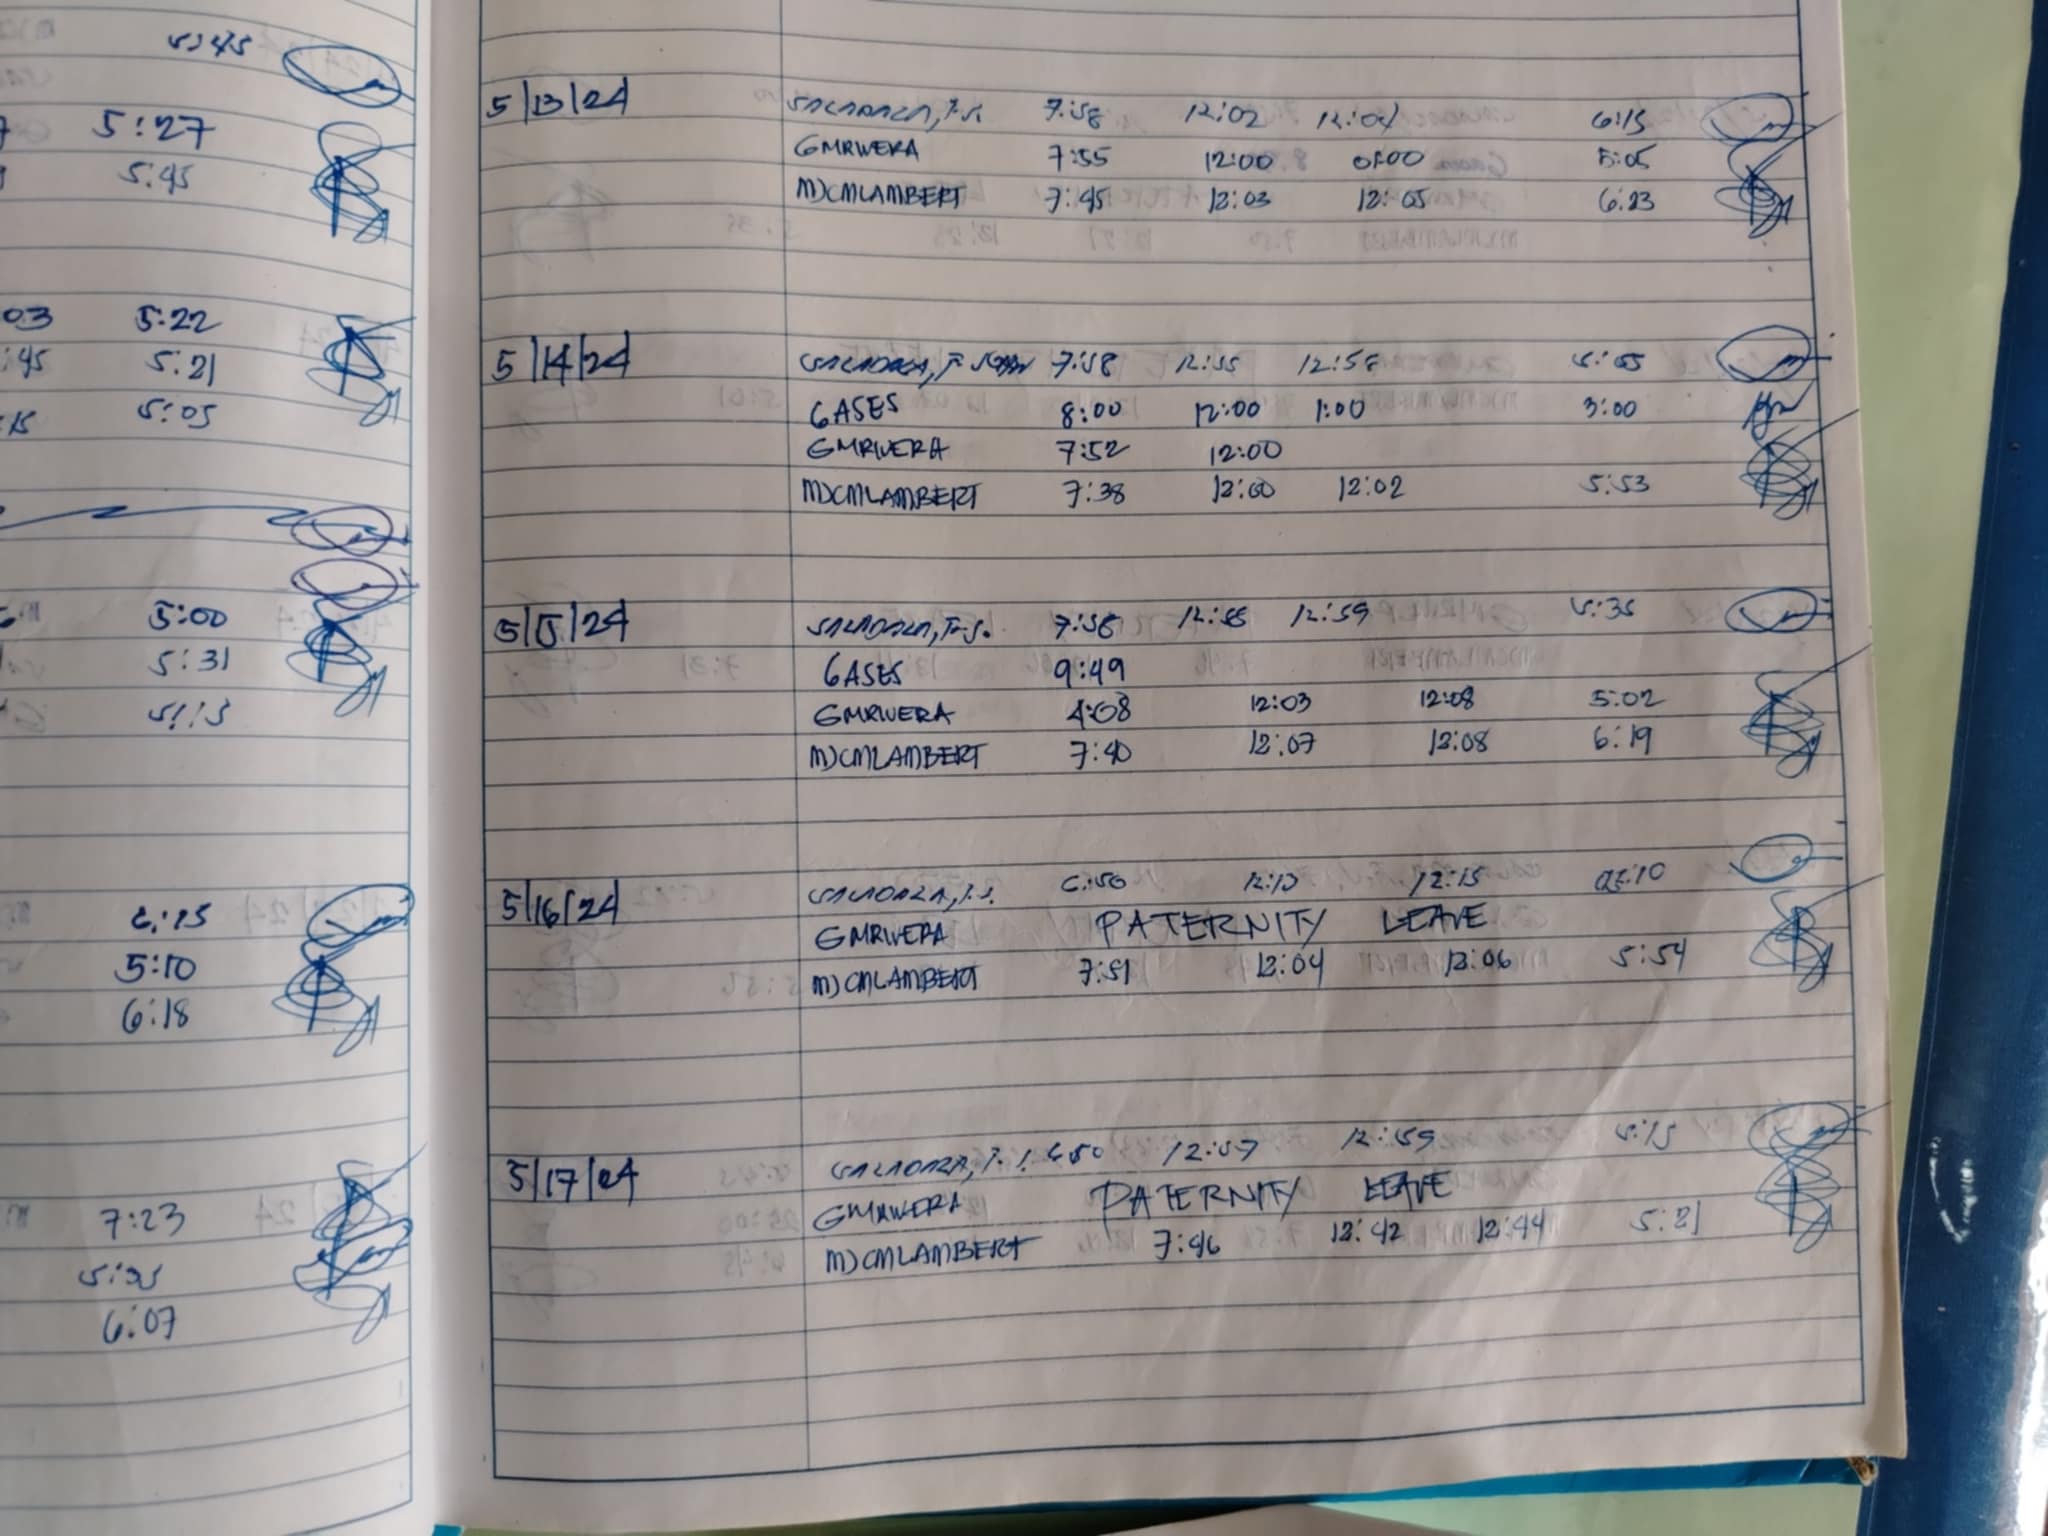 5:45
5:27
5:45
03 5:22
:45 5:21
:15 5:05
5:00
5:31
5:13
6:15
5:10
6:18
7:23
6:07
5/13/24 7:58 12:02 12:04 6:15
GMRIVERA 7:55 12:00 01:00 5:05
MJCMLAMBERT 7:45 12:03 12:05 6:23
5/14/24 7:58 12:55 12:58 5:05
GASES 8:00 12:00 1:00 3:00
GMRIVERA 7:52 12:00
MJCMLAMBERT 7:38 12:00 12:02 5:53
5/15/24 7:58 12:58 12:59 5:35
GASES 9:49
GMRIVERA 12:03 12:08 5:02
MJCMLAMBERT 7:40 12:07 12:08 6:19
5/16/24 6:50 12:13 12:15
GMRIVERA PATERNITY LEAVE
MJCMLAMBERT 7:51 12:04 12:06 5:54
5/17/24 6:50 12:57 12:59 5:15
GMRIVERA PATERNITY LEAVE
MJCMLAMBERT 7:46 12:42 12:44 5:21